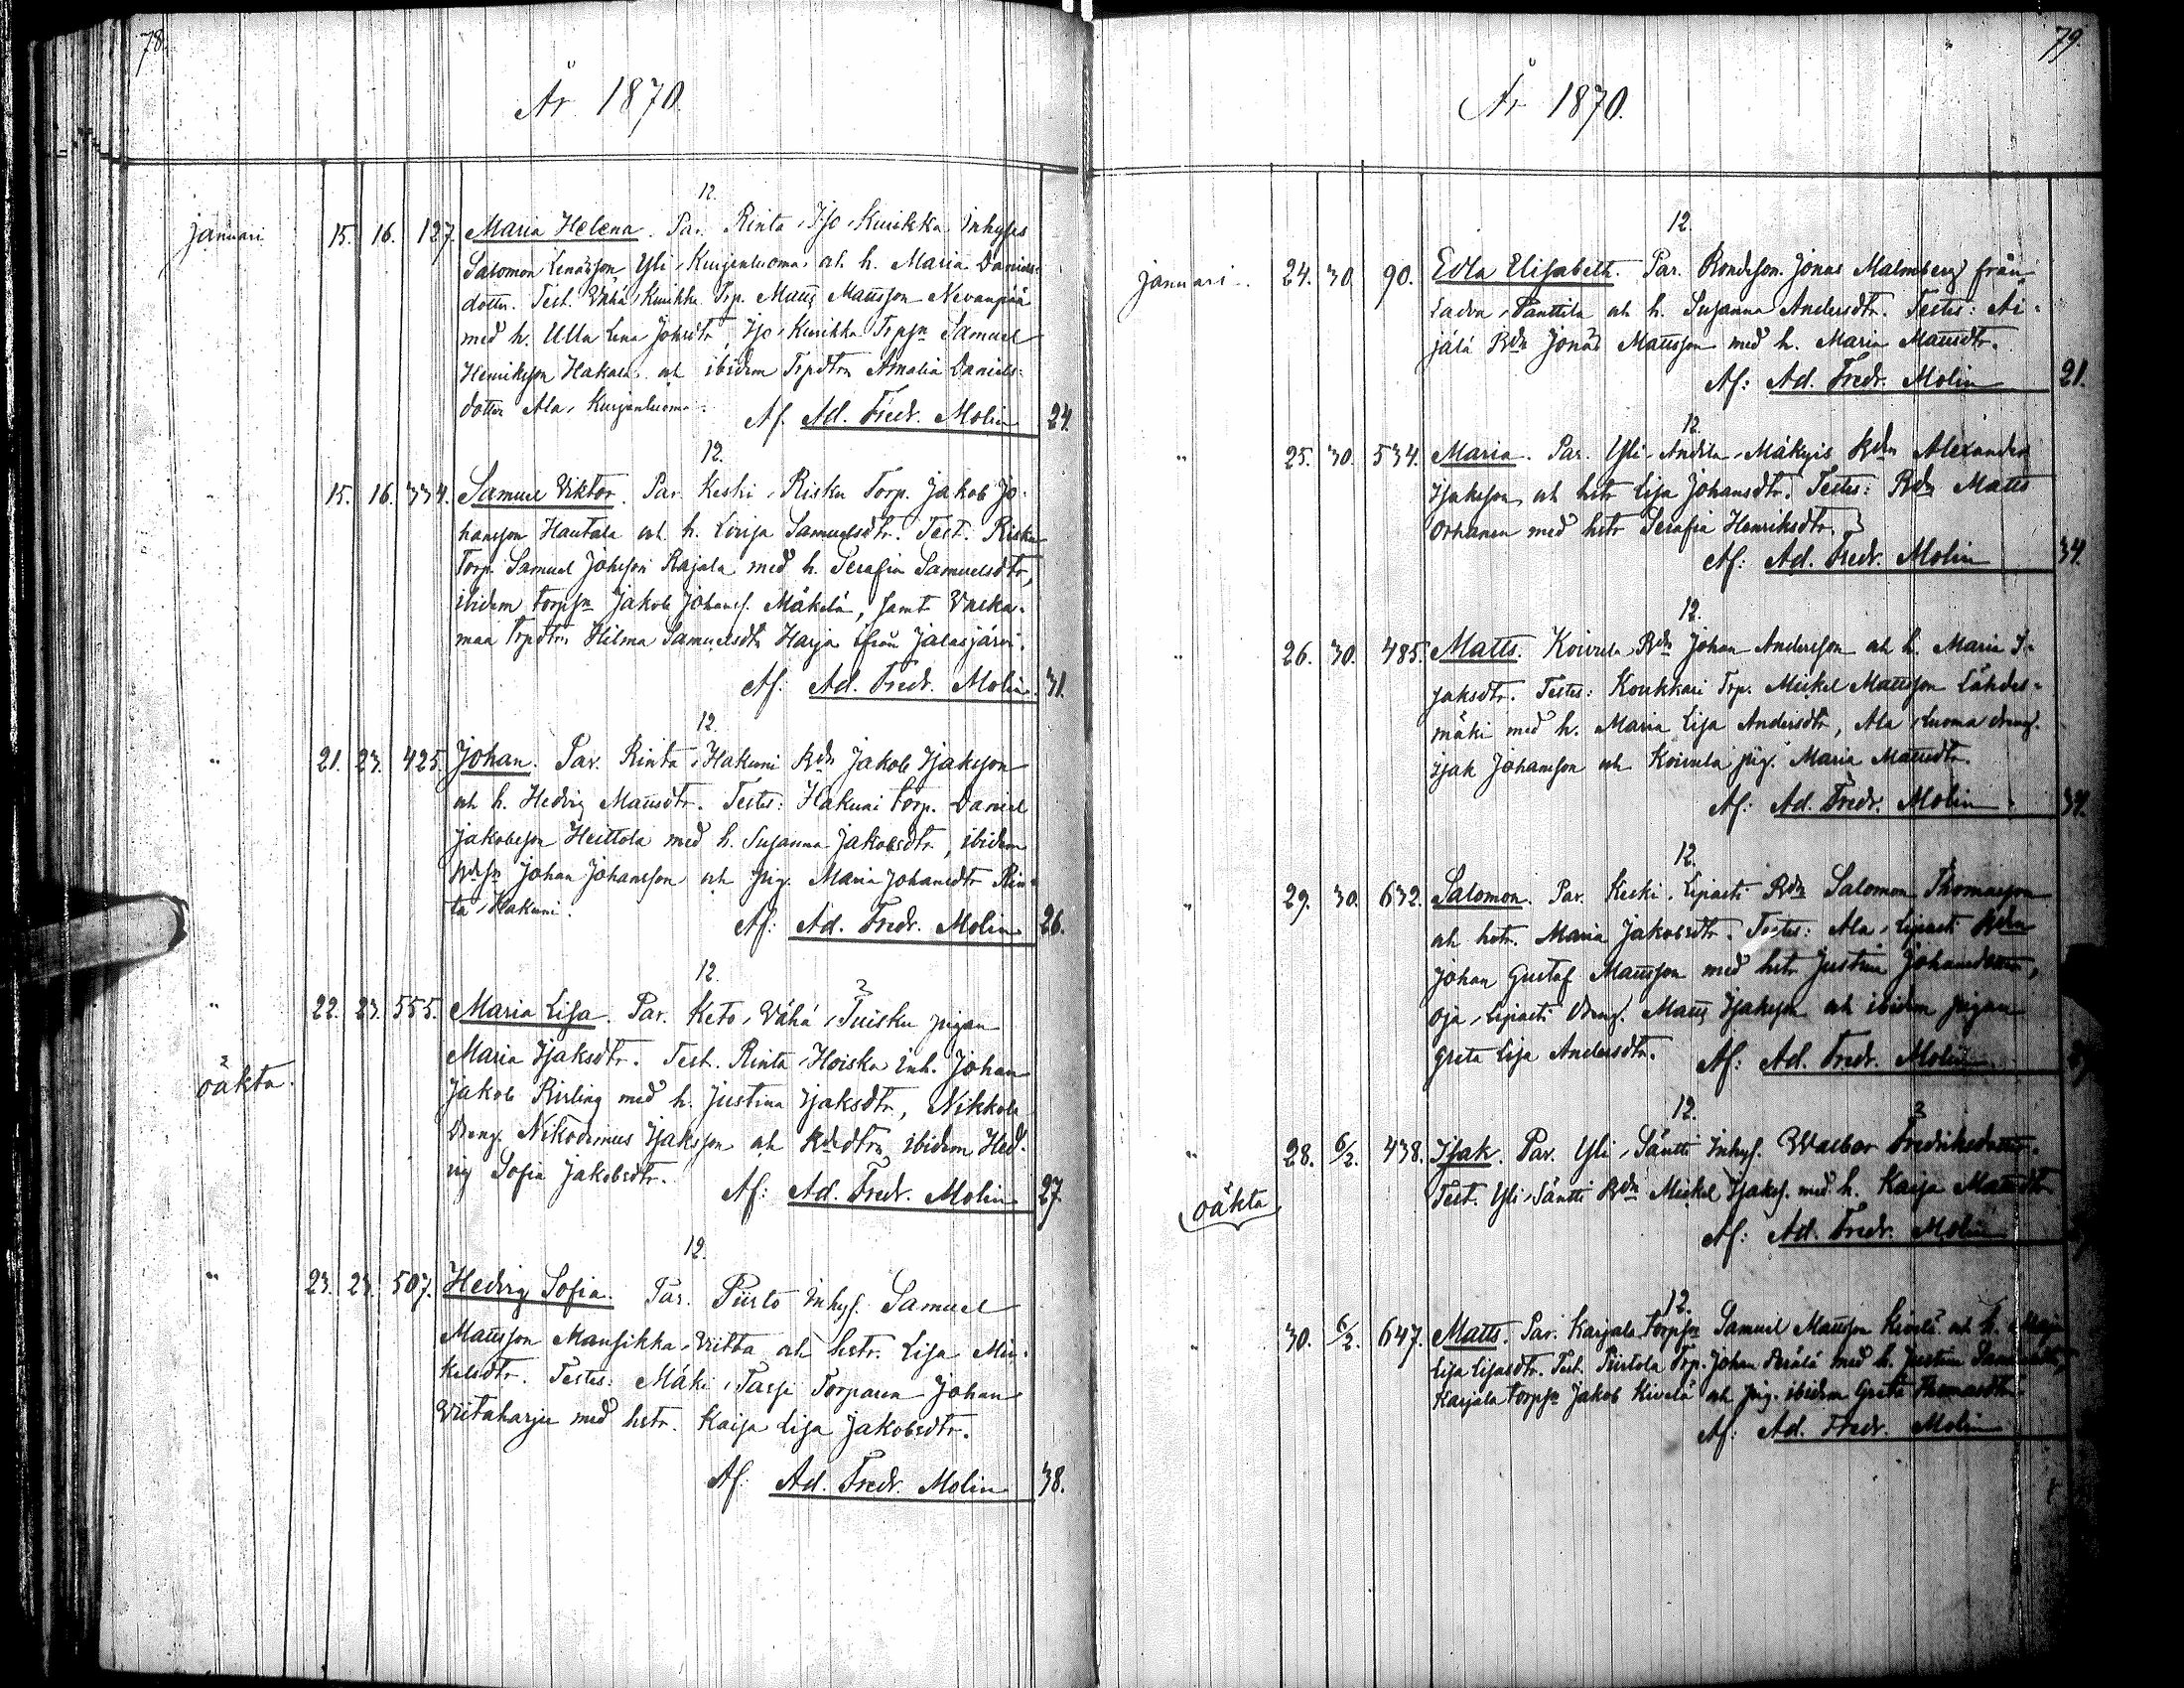 78.
År 1870.
12.
Januari 15. 16. 127. Maria Helena. Par. Rinta, Iso, Kurikka Inhyses
Salomon Yli, Kurjenluoma och h. Maria Daniels-
dotter. Test. Vähä, Kurikka Trp. Matts Mattsson Nevanpää
med h. Ulla Lena Johsdtr, Iso, Kurikka Trpsn Samuel
Henriksson Hakala och ibidem Trpdtrn Amalia Daniels-
dotter Ala, Kurjenluoma.
Af. Ad. Fredr. Molin 24.
12.
" 15. 16. 334. Samuel Viktor. Par. Keski, Risku Torp. Jakob Jo-
hansson Hautala och h. Lovisa Samuelsdtr. Test. Risku
Torp. Samuel Johsson Rajala med h. Serafia Samuelsdtr,
ibidem torpsn Jakob Johanss. Mäkelä, samt
maa Trpdtrn Hilma Samuelsdtr Harja från Jalasjärvi.
Af. Ad. Fredr. Molin. 31.
12.
" 21. 23. 425. Johan. Par. Rinta, Hakuni Bdn Jakob Isaksson
och h. Hedvig Mattsdtr. Testes: Hakuni torp. Daniel
Jakobsson Heittola med h. Susanna Jakobsdtr, ibidem
Bdesn Johan Johansson och pig. Maria Johansdtr Rin-
ta, Hakuni.
Af: Ad. Fredr. Molin 26.
12.
" 22. 23. 555. Maria Lisa. Par. Keto, Vähä, Tuisku pigan
oäkta. Maria Isaksdtr. Test. Rinta, Hoiska Inh. Johan
Jakob med h. Justina Isaksdtr, Nikkola
Dreng. Nikodemus Isaksson och Bdedtrn ibidem Hed-
vig Sofia Jakobsdtr.
Af: Ad. Fredr. Molin 27.
12.
" 23. 23. 507. Hedvig Sofia. Par. Piirto Inhys. Samuel
Mattsson Mansikka, Viita och hstr. Lisa Mic-
kelsdtr. Testes: Mäki, Torparen Johan
Viitaharju med hstr. Kaisa Lisa Jakobsdtr.
Af. Ad. Fredr. Molin 38.
79.
År 1870.
12.
Januari. 24. 30. 90. Edla Elisabeth. Par. Bondeson. Jonas Malmberg från
Ladva, Panttila och h. Susanna Andersdtr. Testes: Äi-
jälä Bdn Jonas Mattsson med h. Maria Mattsdtr.
Af: Ad. Fredr. Molin 21.
12.
" 25. 30. 534. Maria. Par. Yli, Mäkyis Bdn Alexander
Isaksson och hstr Lisa Johansdtr. Testes: Bdn Matts
med hstr Serafia Henriksdtr.
Af: Ad. Fredr. Molin 34.
12.
" 26. 30. 485. Matts. Koivula Bdn Johan Andersson och h. Maria I-
saksdtr. Testes: Koukkari Trp. Mickel Mattsson Lähdes-
mäki med h. Maria Lisa Andersdtr, Ala, Luoma dreng.
Isak Johansson och Koivula pig. Maria Mattsdtr.
Af: Ad. Fredr. Molin. 34.
12.
" 29. 30. 632. Salomon. Par. Keski, Lipasti Bdn Salomon Thomasson
och hstr. Maria Jakobsdtr. Testes: Ala, Lipasti Bdn
Johan Gustaf Mattsson med hstr Justina Johansdotter,
Oja, Lipasti Dreng. Matts Isaksson och ibidem pigan
Greta Lisa Andersdtr. Af: Ad. Fredr. Molin.
12.
" 28. 6/2. 438. Isak. Par. Yli, Säntti Inhys. Walbor Fredriksdotter.
oäkta Test. Yli, Säntti Bdn Mickel Isakss. med h. Kaisa Mattsdtr
Af: Ad. Fredr. Molin
12.
" 30. 6/2. 647. Matts. Par. Karjala torpsn Samuel Mattsson Kivelä och h. Maja
Lisa Lisasdtr. Test. Piirtola Trp. Johan Perälä med h. Justina
Karjala torpsn Jakob Kivelä och pig. ibidem Greta Thomasdtr.
Af: Ad. Fredr. Molin